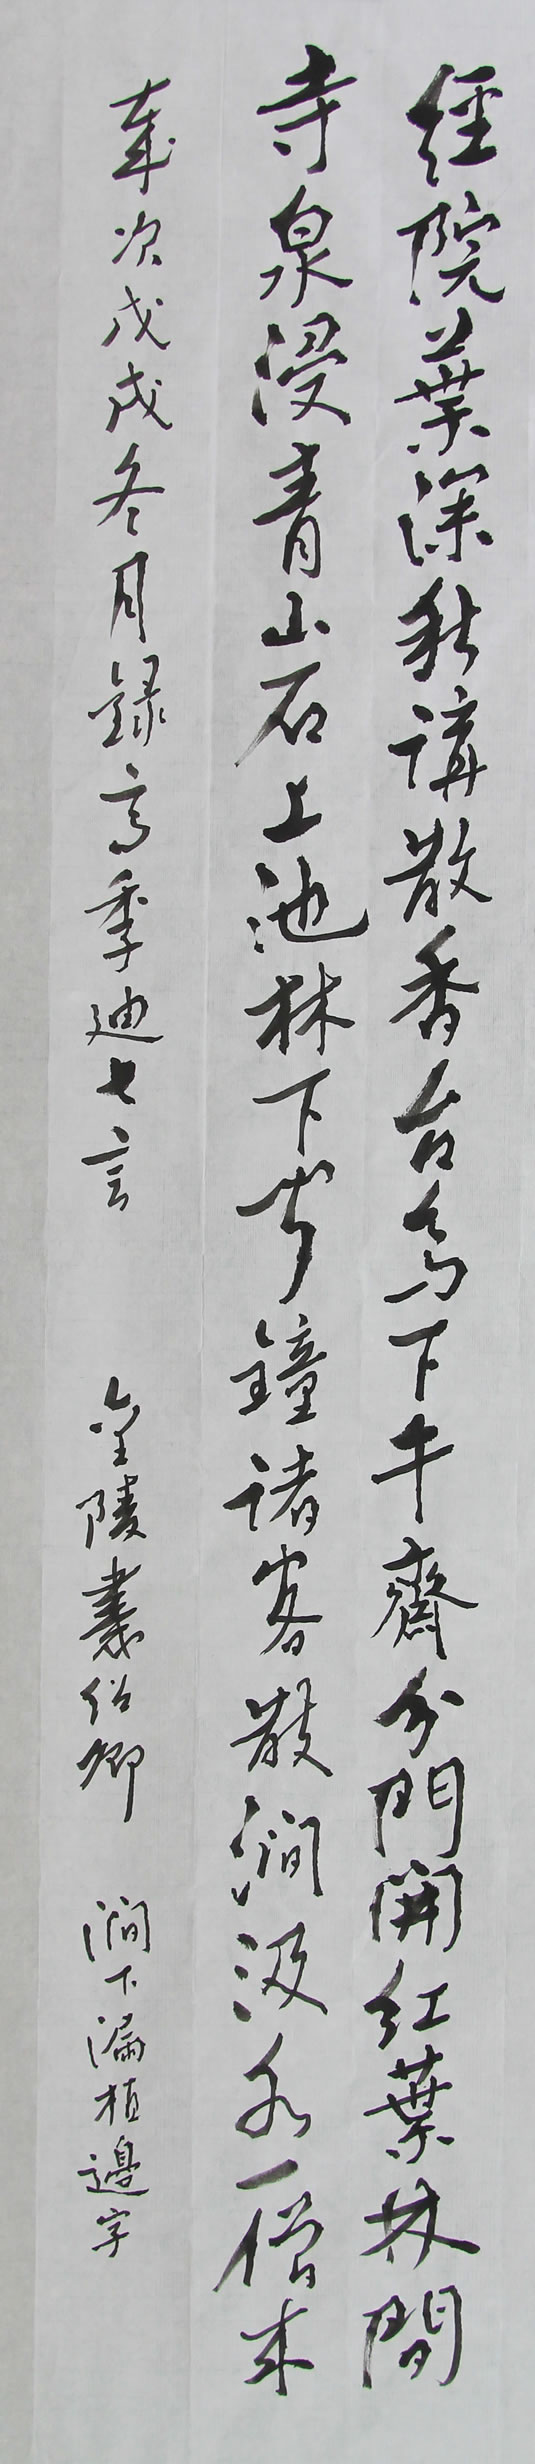 經院葉深秋講散香台鳥下午齋分門開紅葉林間
寺泉浸青山石上池林下聞鐘諸客散澗汲水一僧來
歲次戊戌冬月錄高季迪七言 金陵紹卿 澗下漏植邊字